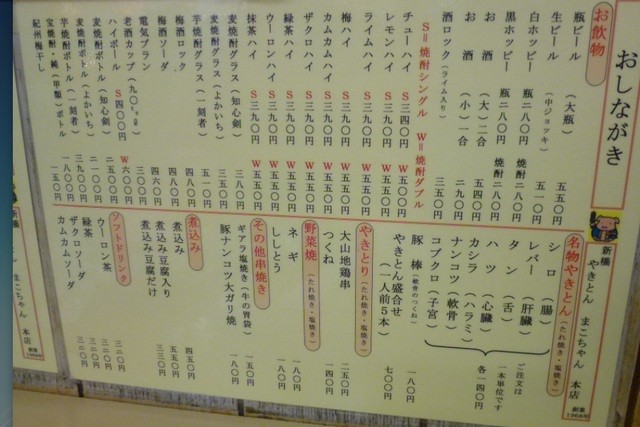 おしながき
お飲物
瓶ビール （大瓶） 五五〇円
生ビール （中ジョッキ） 五一〇円
白ホッピー 瓶二八〇円 焼酎二八〇円
黒ホッピー 瓶二八〇円 焼酎二八〇円
お酒 （大）二合 五四〇円
お酒 （小）一合 二九〇円
酒ロック （ライム入り） 三五〇円
S＝焼酎シングル W＝焼酎ダブル
チューハイ S 三四〇円 W 五〇〇円
レモンハイ S 三九〇円 W 五五〇円
ライムハイ S 三九〇円 W 五五〇円
梅ハイ S 三九〇円 W 五五〇円
カムカムハイ S 三九〇円 W 五五〇円
ザクロハイ S 三九〇円 W 五五〇円
緑茶ハイ S 三九〇円 W 五五〇円
ウーロンハイ S 三九〇円 W 五五〇円
抹茶ハイ S 三九〇円 W 五五〇円
麦焼酎グラス （知心剣） 三八〇円
麦焼酎グラス （よかいち） 三五〇円
芋焼酎グラス （一刻者） 五一〇円
梅酒ロック 四八〇円
梅酒ソーダ 四八〇円
電気ブラン 四六〇円
老酒カップ 三〇〇円
ハイボール S 四〇〇円 W 六〇〇円
麦焼酎ボトル （知心剣） 二五〇〇円
麦焼酎ボトル （よかいち） 二一〇〇円
芋焼酎ボトル （一刻者） 三九〇〇円
宝焼酎・純（甲類）ボトル 一八〇〇円
紀州梅干し 一五〇円
新橋 やきとん まこちゃん 本店
創業1968年
名物やきとん （たれ焼き・塩焼き）
シロ （腸）
レバー （肝臓）
タン （舌）
ハツ （心臓）
カシラ （ハラミ）
ナンコツ （軟骨）
コブクロ （子宮）
各一四〇円
ご注文は一本単位です
豚棒 （軟骨のつくね） 一八〇円
やきとん盛合せ （一人前5本） 七〇〇円
やきとり （たれ焼き・塩焼き）
大山地鶏串 二五〇円
つくね 一四〇円
野菜焼 （たれ焼き・塩焼き）
ネギ 一八〇円
ししとう 一八〇円
その他串焼き
ギアラ塩焼き （牛の胃袋） 二五〇円
豚ナンコツ大ガリ焼 一八〇円
煮込み
煮込み 四五〇円
煮込み豆腐入り 五五〇円
煮込み豆腐だけ 三三〇円
ソフトドリンク
ウーロン茶 三二〇円
緑茶 三二〇円
ザクロソーダ 三二〇円
カムカムソーダ 三二〇円
新橋
まこちゃん 本店
創業1968年